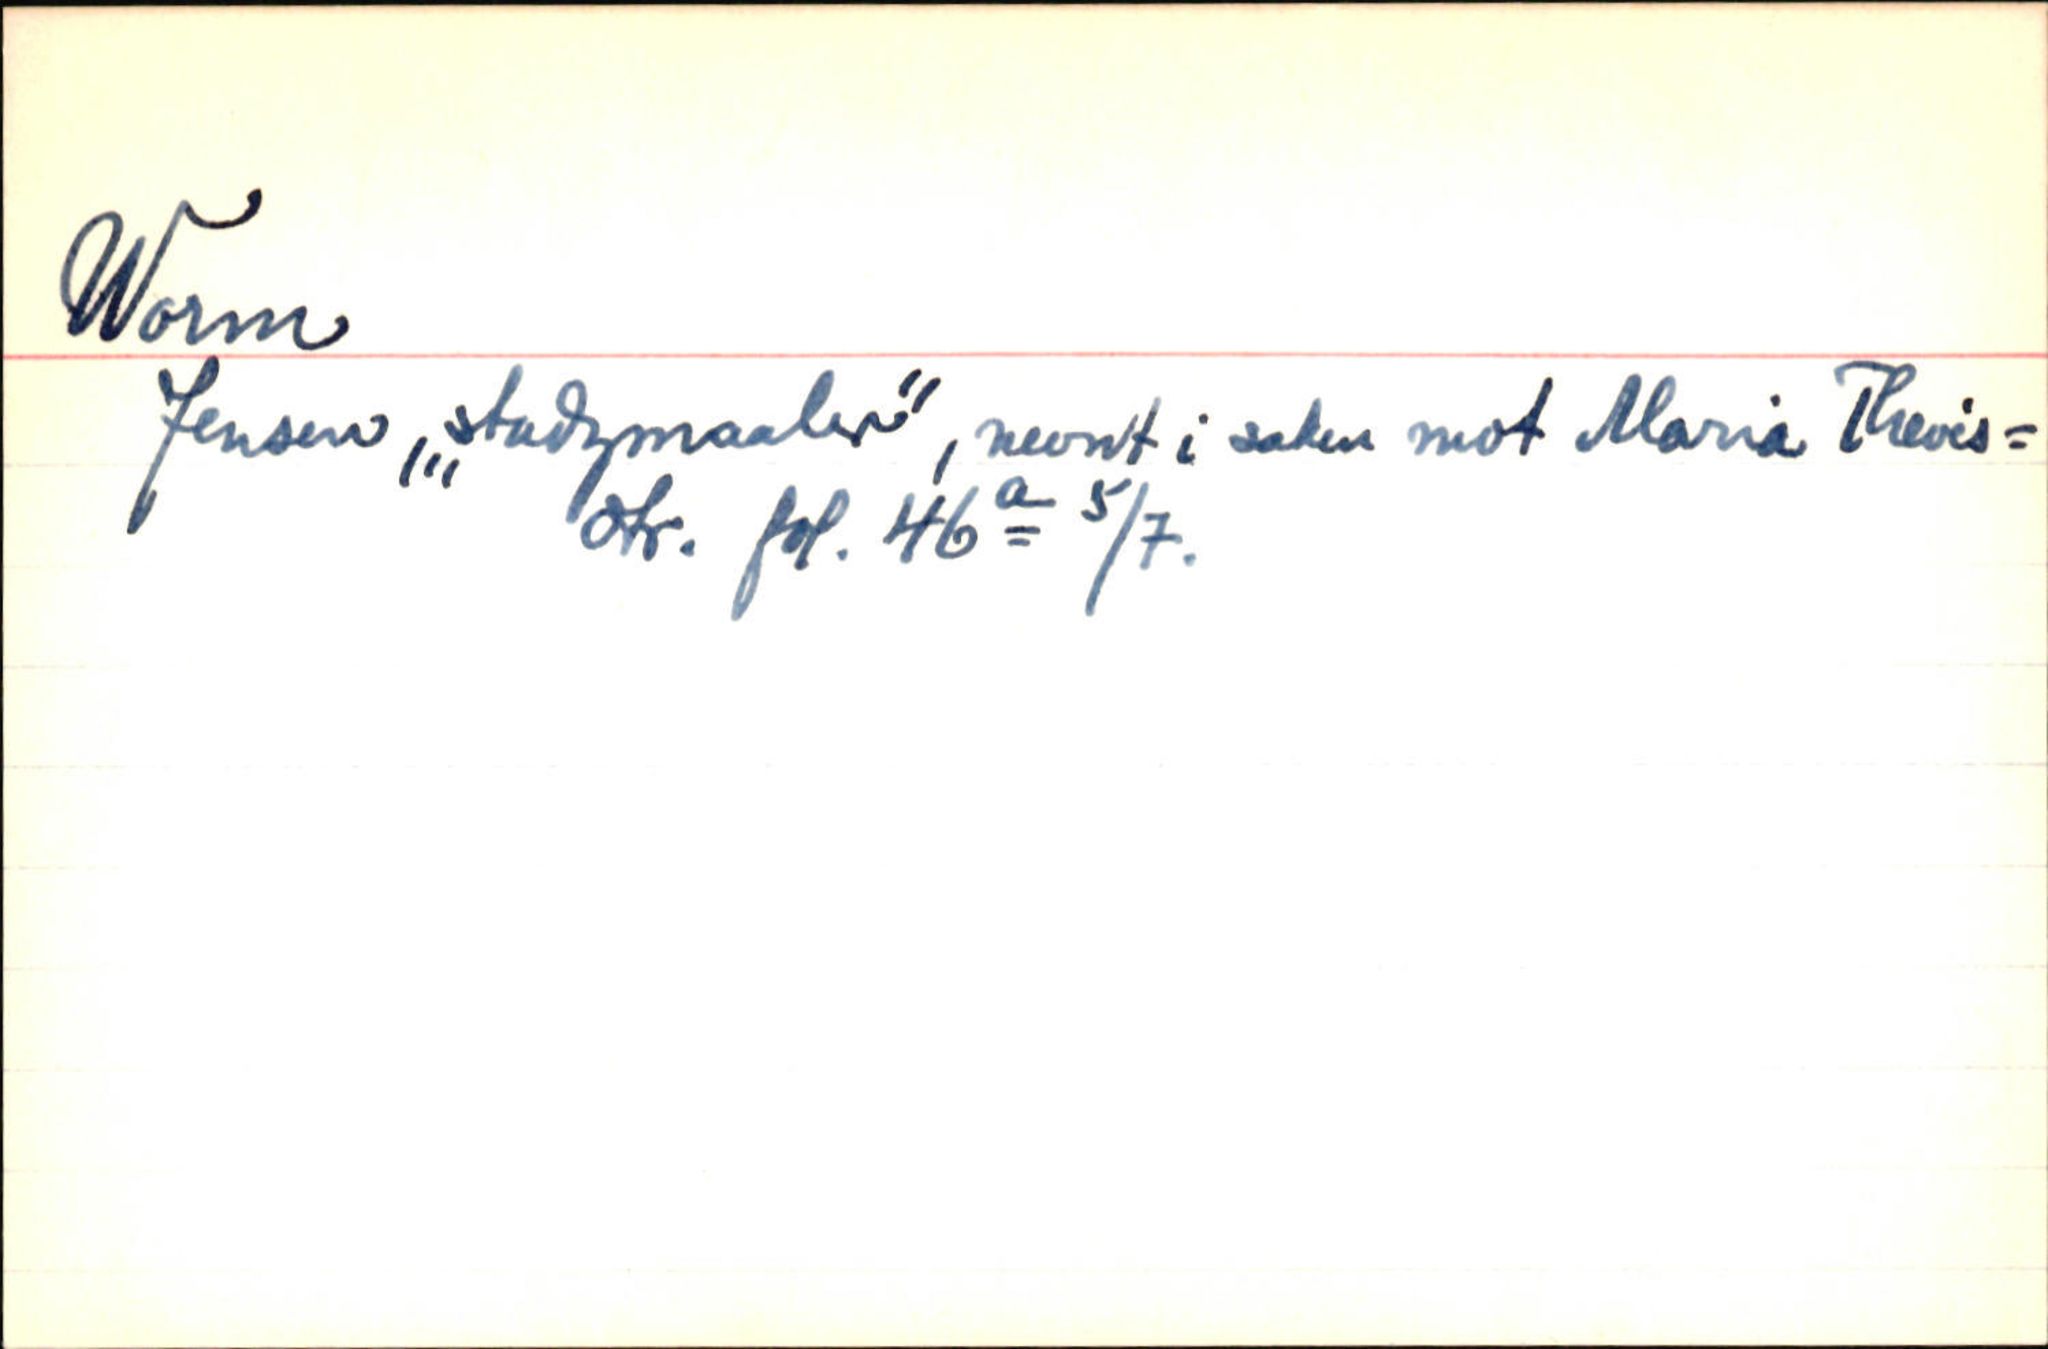 Worm
Jensen, „stadzmaaler", nevnt i saken mot Maria Thevis=
dtr. fol. 46a 5/7.